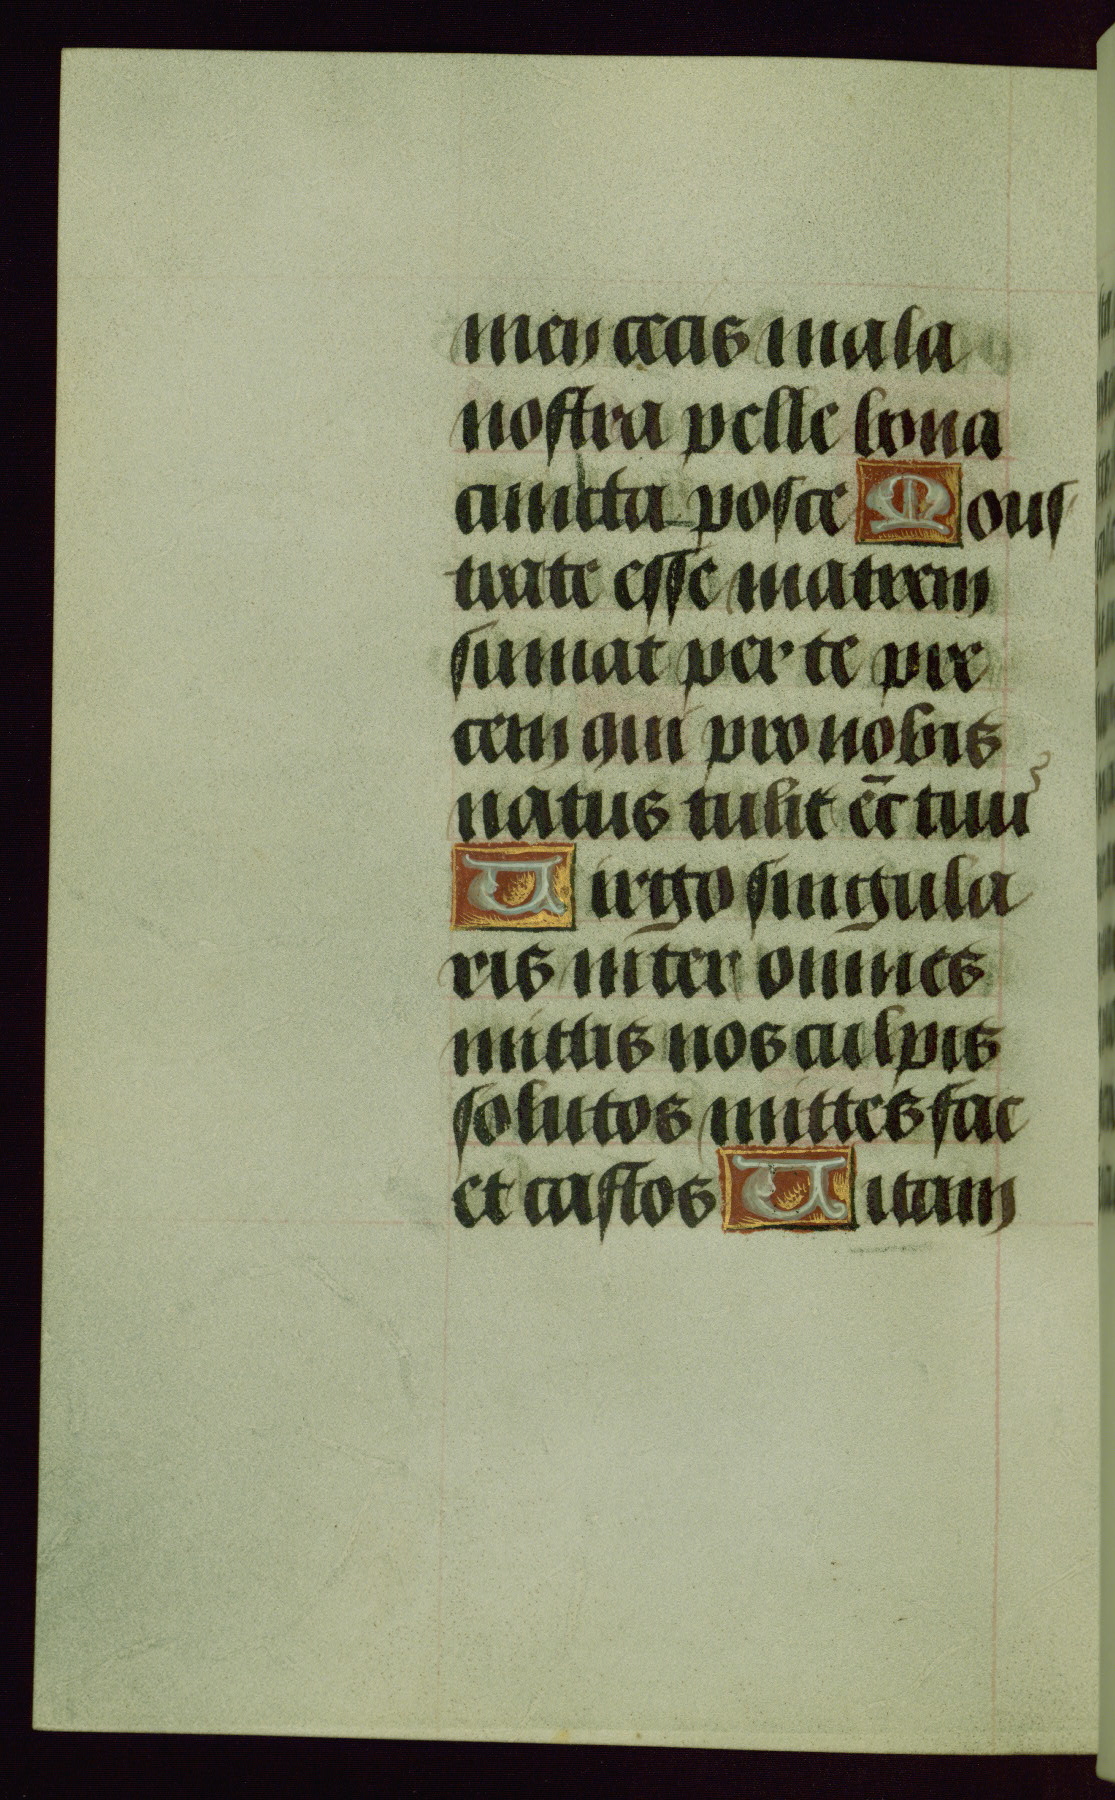 men cecis mala
nostra pelle bona
cuncta posce Mons
trate esse matrem
sumat per te pre
cem qui pro nobis
natus tulit ec̄ tuu
Uirgo singula
ris inter omnes
mitlis nos culpis
solutos mittes fac
et castos Uitam